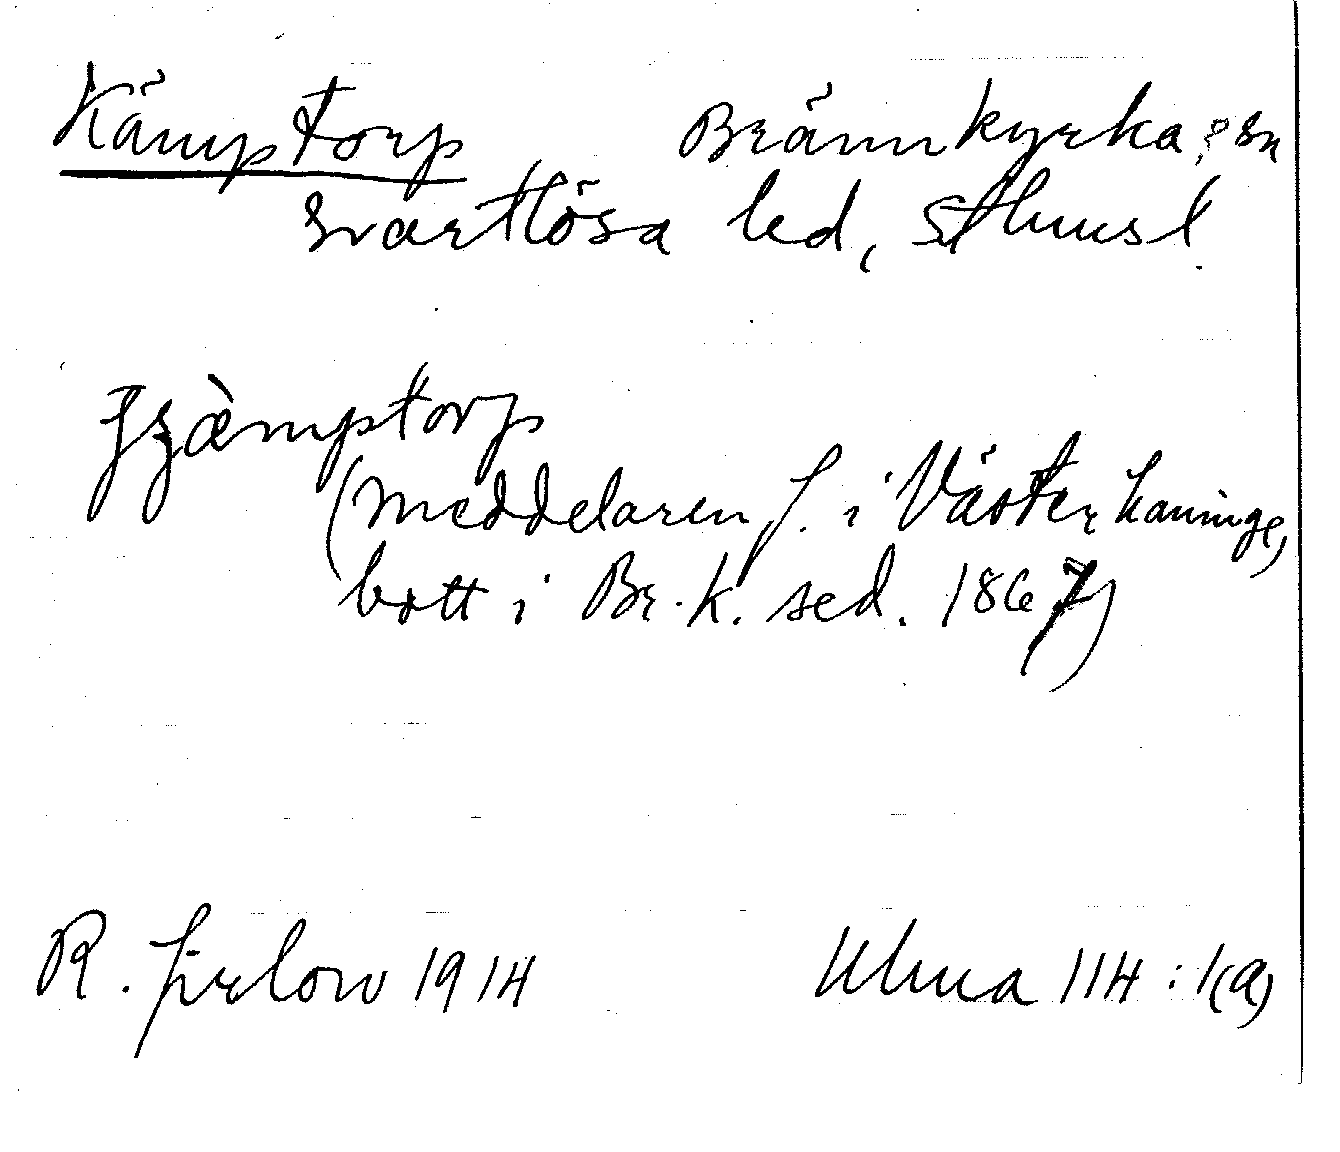 Kämptorp Brännkyrka ? sn
Svartlösa hd, Sthmsl.
(Meddelaren f. i Västerhaninge,
bott i Br.k. sed. 1867)
R. Jirlow 1914 Ulma 114:1(a)